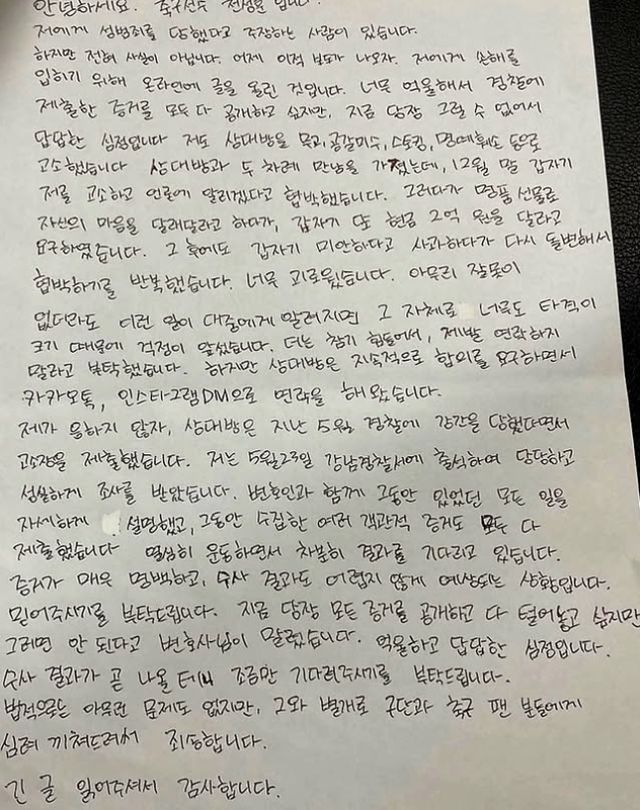 안녕하세요. 축구선수 전성훈 입니다.
저에게 성범죄를 당했다고 주장하는 사람이 있습니다.
하지만 전혀 사실이 아닙니다. 어제 이적 보도가 나오자, 저에게 손해를
입히기 위해 온라인에 글을 올린 것입니다. 너무 억울해서 경찰에
제출한 증거를 모두 다 공개하고 싶지만, 지금 당장 그럴 수 없어서
답답한 심정입니다 저도 상대방을 무고, 공갈미수, 스토킹, 명예훼손 등으로
고소했습니다 상대방과 두 차례 만남을 가졌는데, 12월 말 갑자기
저를 고소하고 언론에 알리겠다고 협박했습니다. 그러다가 명품 선물로
자신의 마음을 달래달라고 하다가, 갑자기 또 현금 2억 원을 달라고
요구하였습니다. 그 후에도 갑자기 미안하다고 사과하다가 다시 돌변해서
협박하기를 반복했습니다. 너무 괴로웠습니다. 아무리 잘못이
없더라도 이런 일이 대중에게 알려지면 그 자체로 너무도 타격이
크기 때문에 걱정이 앞섰습니다. 더는 참기 힘들어서, 제발 연락하지
말라고 부탁했습니다. 하지만 상대방은 지속적으로 합의를 요구하면서
카카오톡, 인스타그램DM으로 연락을 해왔습니다.
제가 응하지 않자, 상대방은 지난 5월 경찰에 강간을 당했다면서
고소장을 제출했습니다. 저는 5월23일 강남경찰서에 출석하여 당당하고
성실하게 조사를 받았습니다. 변호인과 함께 그동안 있었던 모든 일을
자세하게 설명했고, 그동안 수집한 여러 객관적 증거도 모두 다
제출했습니다 열심히 운동하면서 차분히 결과를 기다리고 있습니다.
증거가 매우 명백하고, 수사 결과도 어렵지 않게 예상되는 상황입니다.
믿어주시기를 부탁드립니다. 지금 당장 모든 증거를 공개하고 다 털어놓고 싶지만
그러면 안 된다고 변호사님이 말렸습니다. 억울하고 답답한 심정입니다.
수사 결과가 곧 나올 테니 조금만 기다려주시기를 부탁드립니다.
법적으로는 아무런 문제도 없지만, 그와 별개로 구단과 축구 팬 분들에게
심려 끼쳐드려서 죄송합니다.
긴 글 읽어주셔서 감사합니다.